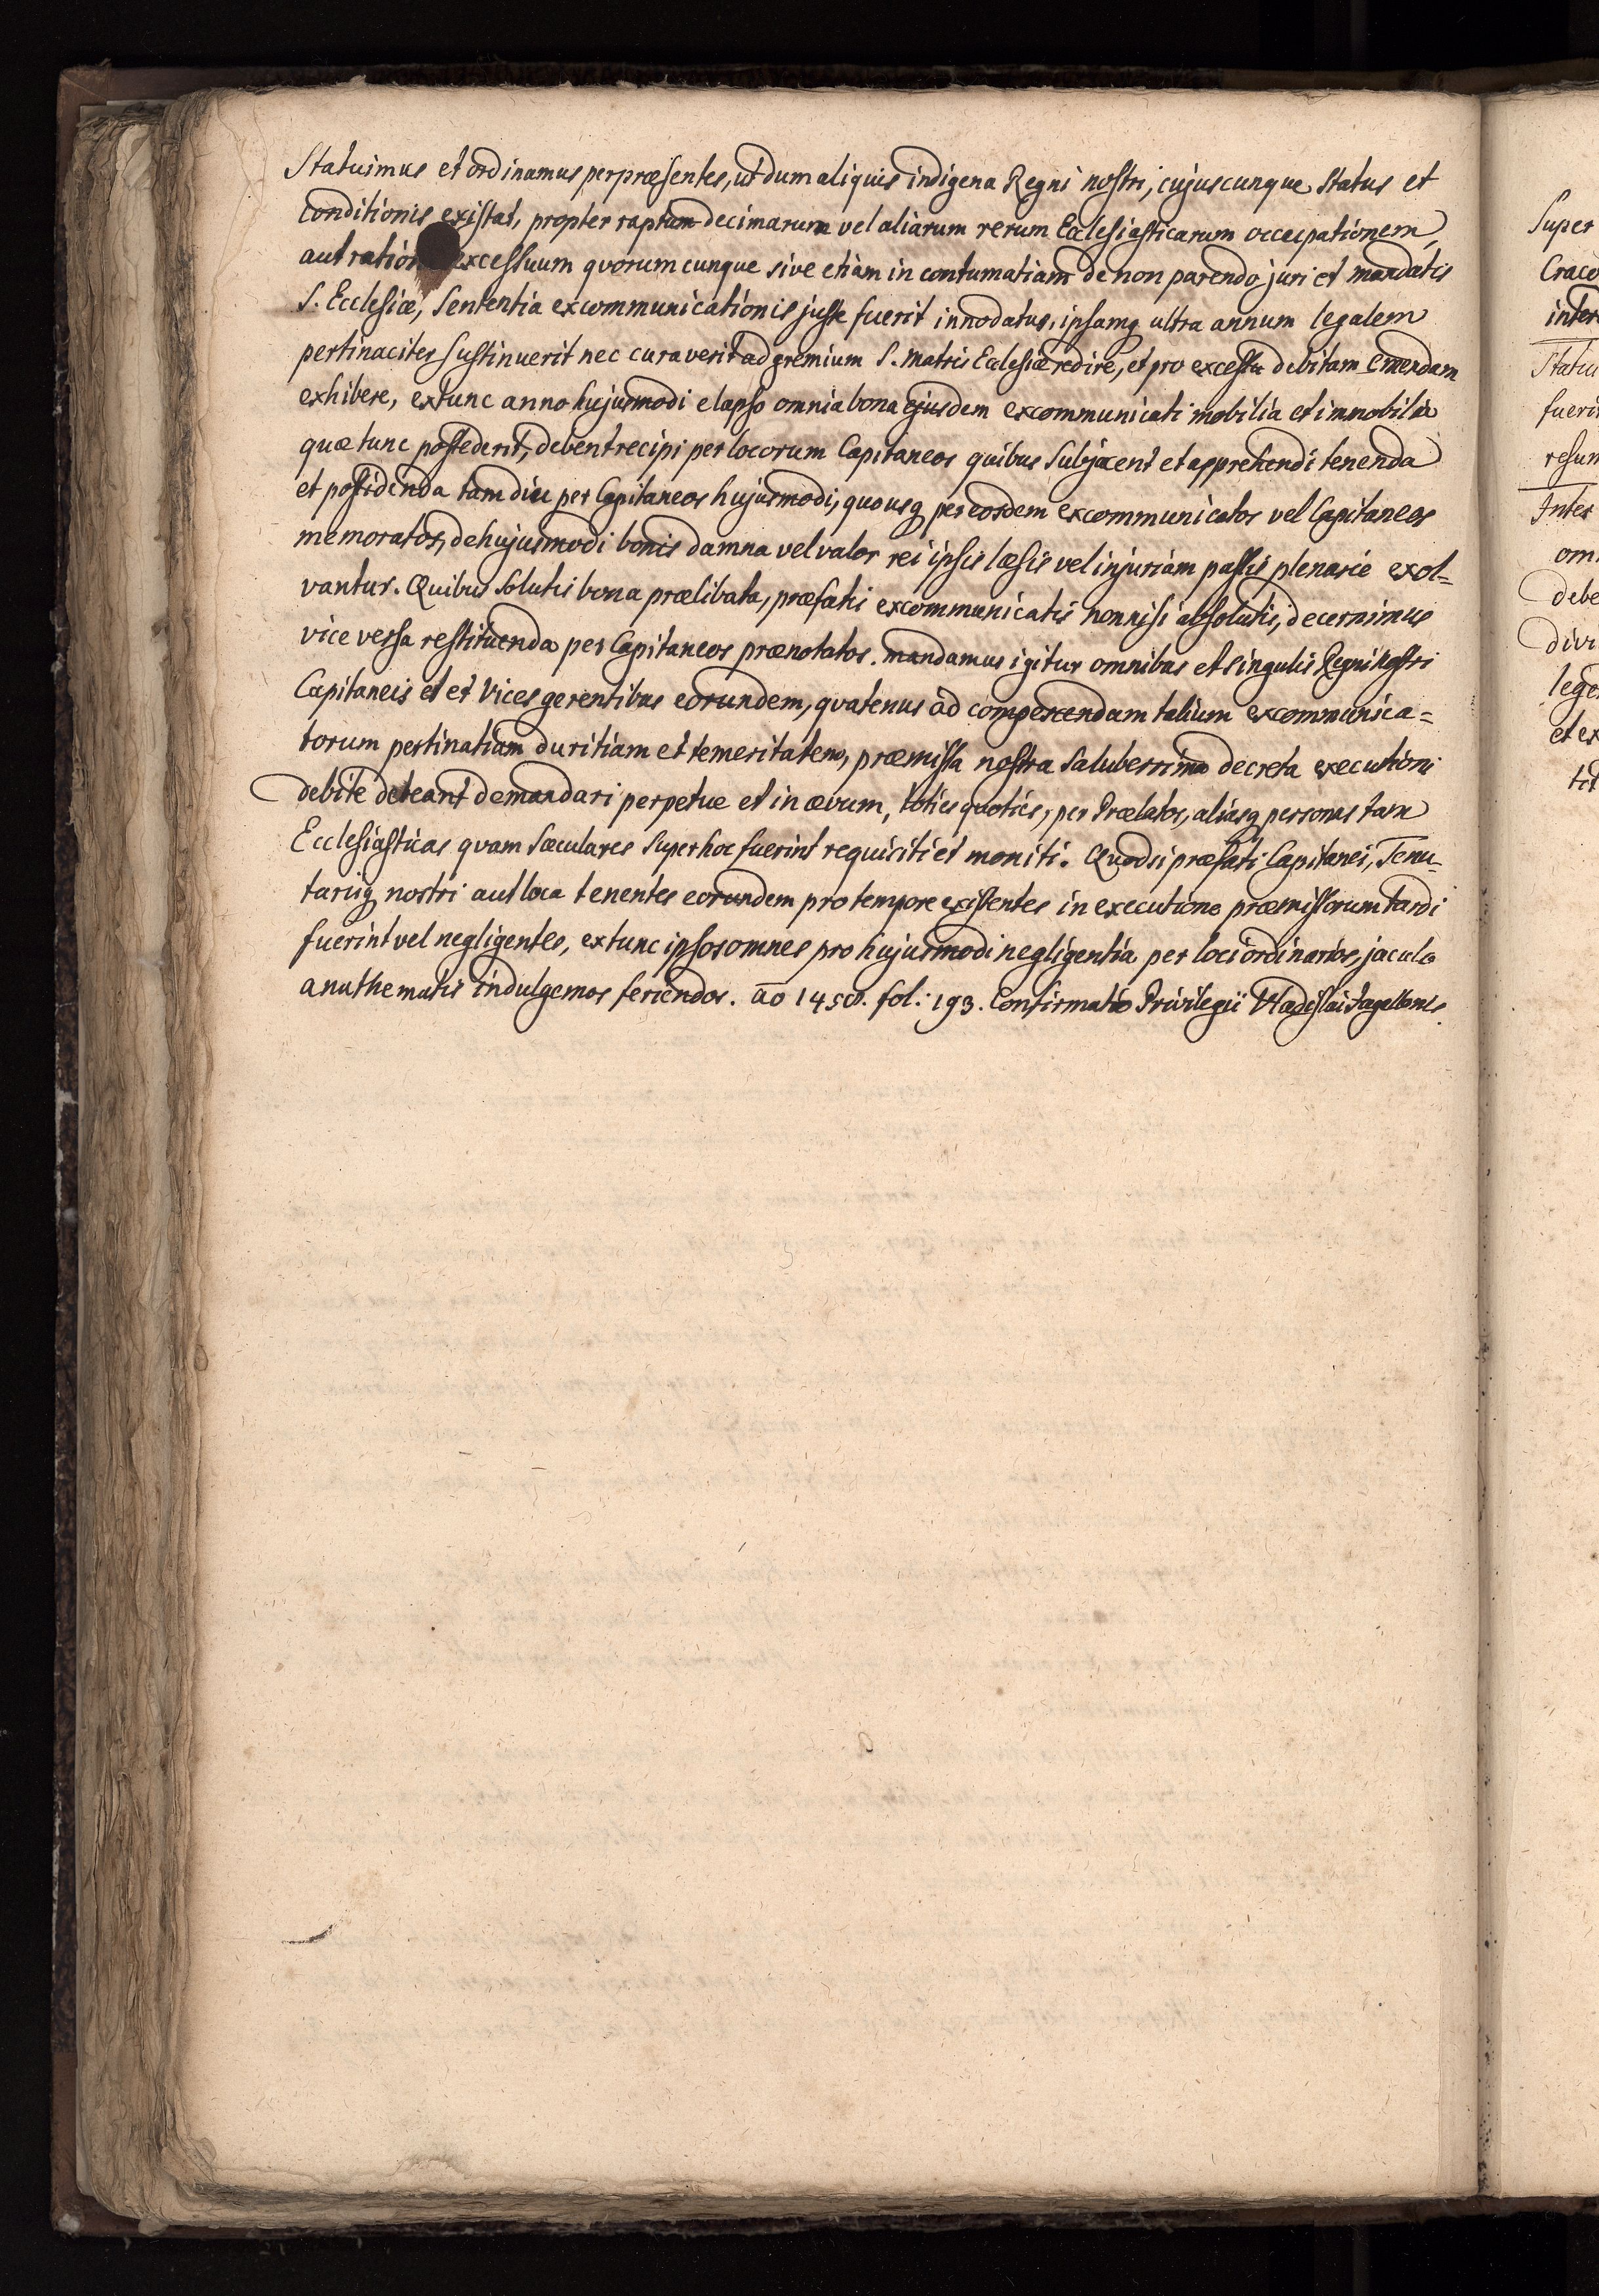 Statuimus et ordinamus per præsentes, ut dum aliquis indigena Regni nostri, cujuscunque status et
conditionis existat, propter raptum decimarum vel aliarum rerum Ecclesiasticarum occupationem,
aut ration excessuum qvorumcunque sive etiam in contumatiam de non parendo juri et mandatis
S. Ecclesiæ, sententia excommunicationis juste fuerit innodatus, ipsamq ultra annum legalem
pertinaciter sustinuerit nec curaverit ad gremium S. Matris Ecclesiæ redire, et pro excessu debitam emendam
exhibere, extunc anno hujusmodi elapso omnia bona ejusdem excommunicati mobilia et immobilia
quæ tunc possederit, debent recipi per locorum Capitaneos quibus subjacent et apprehendi tenenda
et possidenda tam diu per Capitaneos hujusmodi, quousq per eosdem excommunicatos vel Capitaneos
memoratos, de hujusmodi bonis damna vel valor rei ipsis læsis vel injuriam passis plenarie exol=
vantur. Quibus solutis bona prælibata, præfatis excommunicatis nonnisi absolutis, decernimus
vice versa restituenda per Capitaneos prænotatos. mandamus igitur omnibus et singulis Regni Nostri
Capitaneis et et Vices gerentibus eorundem, qvatenus ad compescendam talium excommunica=
torum pertinatiam duritiam et temeritatem, præmissa nostra saluberrima decreta executioni
debite debeant demandari perpetue et in ævum, toties quoties, per Prælatos, aliasq personas tam
Ecclesiasticas qvam sæculares super hoc fuerint requisiti et moniti. Quodsi præfati Capitanei, Tenu=
tariiq nostri aut loca tenentes eorundem pro tempore existentes in executione præmissorum tardi
fuerint vel negligentes, extunc ipsos omnes pro hujusmodi negligentia per loci ordinarios, jaculo
anathematis indulgemos feriendos. ao 1450. fol: 193. Confirmatio Privilegii Vladislai Jagellonis.
Super
Craco
inter
Statu
fueri
resum
Inter
om
debe
divi
lege
et ex
tit